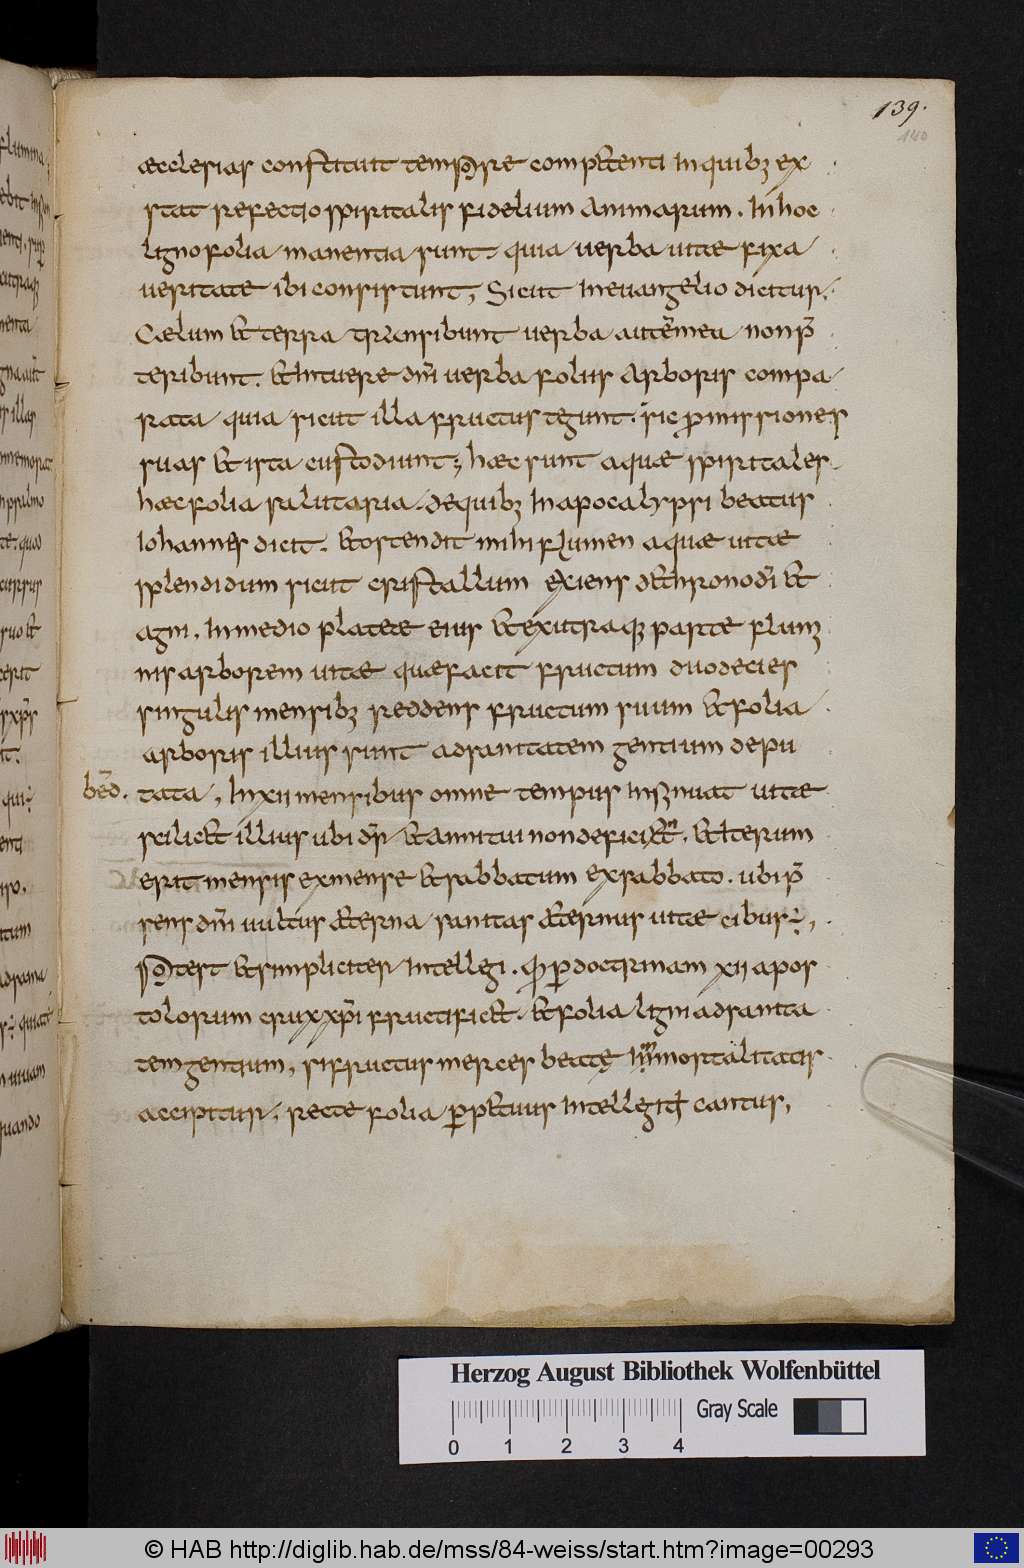 139.
140
æcclesias constituit tempore competenti in quib; ex
stat refectio spiritalis fidelium animarum. In hoc
ligno folia manentia sunt. quia uerba uitae fixa
ueritate ibi consistunt, Sicut in euangelio dicitur.
Cælum et terra transibunt uerba autē mea non p̄
teribunt. et intuere dn̄i uerba foliis arboris compa
rata quia sicut illa fructus tegunt. sic promissiones
suas et ista custodiunt; hæc sunt aquae spiritales.
hæc folia salutaria. de quib; In apocalypsi beatus
Iohannes dicit. et ostendit mihi flumen aquae uitae
splendidum sicut cristallum exiens de throno dī et
agni. In medio plateae eius et ex utraq; parte flumi
nis arborem uitae quae facit fructum duodecies
singulis mensib; reddens fructum suum et folia
arboris illius sunt ad sanitatem gentium depu
bēd. tata, In xii mensibus omne tempus insinuat uitae
scilicet illius ubi dn̄s et anni tui non deficient. et iterum
erit mensis ex mense et sabbatum ex sabbato. ubi p̄
sens dn̄i uultus aeterna sanitas aeternus uitae cibus ÷,
Potest et simpliciter intellegi. quod per doctrinam xii apos
tolorum crux xp̄i fructificet. et folia ligni ad sanita
tem gentium, si fructus merces beatę Immortalitatis
accipitur. recte folia perpetuus intellegitur cantus,
Herzog August Bibliothek Wolfenbüttel
Gray Scale
0 1 2 3 4
© HAB http://diglib.hab.de/mss/84-weiss/start.htm?image=00293